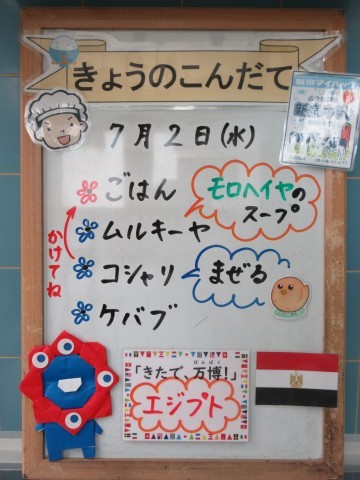 きょうのこんだて
7月2日(水)
ごはん
モロヘイヤの
スープ
ムルキーヤ
かけてね
コシャリ
まぜる
ケバブ
「きたで、万博!」
ばんぱく
エジプト